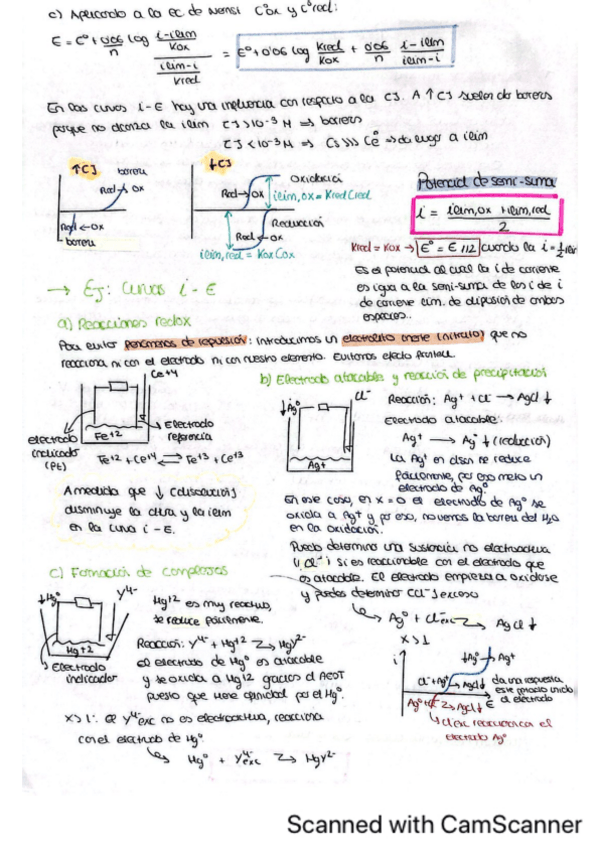 c) Aplicando a la ec de Nernst C°ox y C°red:
E = E° + 0'06/n log (i-ilim/Kox)/(ilim-i/Kred) = E° + 0'06 log Kred/Kox + 0'06/n i-ilim/ilim-i
En las curvas i-E hay una influencia con respecto a la [ ]. A ↑[ ] suelen dar barreras
porque no alcanza la ilim [ ]>10⁻³ M ⇒ barrera
[ ]<10⁻³ M ⇒ Cs>>> Ce° ⇒ da lugar a ilim
↑[ ] barrera
Red → Ox
Red ← Ox
barrera
↓[ ]
Oxidación
Red → Ox
ilim,ox = Kred Cred
Reducción
Red ← Ox
ilim,red = Kox Cox
Potencial de semi-suma
i = ilim,ox + ilim,red / 2
Kred = Kox → E° = E 1/2 cuando la i = ½
Es el potencial al cual la i de corriente
es igual a la semi-suma de las i de
de corriente lim. de difusión de ambas
especies..
→ Ej: Curvas i - E
a) Reacciones redox
Para evitar fenómenos de repulsión: introducimos un electrolito inerte (nitrato) que no
reacciona ni con el electrodo ni con nuestro elemento. Evitamos efecto
Ce+4
Fe+2
electrodo indicador (Pt)
Electrodo referencia
Fe+2 + Ce+4 ⇌ Fe+3 + Ce+3
A medida que ↓ [disolución]
disminuye la altura y la ilim
en la curva i - E.
b) Electrodo atacable y reacción de precipitación
↓Ag°
Cl⁻
Ag+
Reacción: Ag+ + Cl⁻ → AgCl ↓
Electrodo atacable:
Ag+ → Ag° ↓ (reducción)
La Ag+ en disn se reduce
fácilmente, por eso meto un
electrodo de Ag°
En ese caso, en x = 0 el electrodo de Ag° se
oxida a Ag+ y por eso, no vemos la barrera del H₂O
en la oxidación.
Puedo determinar una sustancia no electroactiva
(Cl⁻) si es reaccionable con el electrodo que
es atacable. El electrodo empieza a oxidarse
y puedes determinar [Cl⁻] exceso
↳ Ag° + Cl⁻exc ⇌ AgCl ↓
x > 1
i
↓Ag° → Ag+
Cl⁻ + Ag° → AgCl ↓
E
Ag° + Cl⁻ ⇌ AgCl ↓
da una respuesta
el electrodo
el
electrodo Ag°
c) Formación de complejos
↓Hg°
Y⁴⁻
Hg+2
Electrodo indicador
Hg+2 es muy reactivo,
se reduce fácilmente.
Reacción: Y⁴⁻ + Hg+2 ⇌ HgY²⁻
El electrodo de Hg° es atacable
y se oxida a Hg+2 gracias al AEDT
puesto que tiene afinidad por el Hg°.
x > 1: el Y⁴⁻exc no es electroactiva, reacciona
con el electrodo de Hg°.
↳ Hg° + Y⁴⁻exc ⇌ HgY²⁻
Scanned with CamScanner